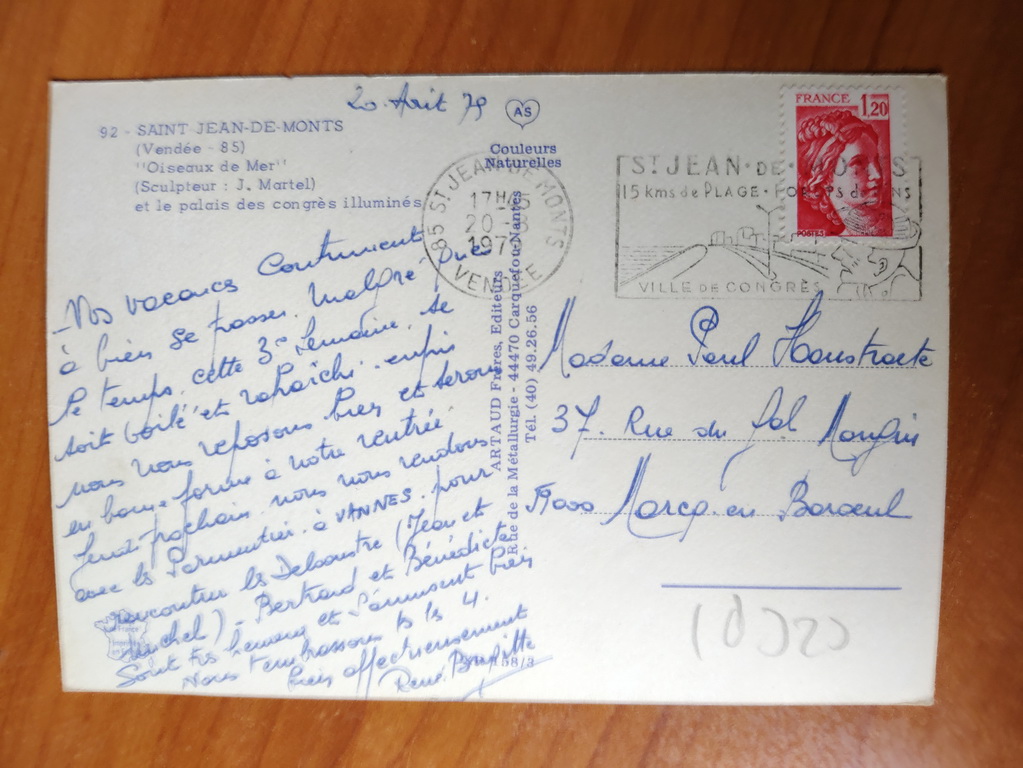 20 Août 79
AS
92 - SAINT JEAN-DE-MONTS
(Vendée - 85)
"Oiseaux de Mer"
(Sculpteur : J. Martel)
et le palais des congrès illuminés
Couleurs
Naturelles
85 ST JEAN DE MONTS
17H45
20-8
1979
VENDÉE
ST JEAN·DE·MONTS
15 kms de PLAGE·
VILLE DE CONGRÈS
FRANCE 1,20
POSTES
- Nos vacances continuent
à bien se passer. malgré que
le temps, cette 3e semaine, se
soit voilé et rafraîchi. enfin
nous nous reposons bien et serons
en bonne forme à notre rentrée
Jeudi prochain nous nous rendons
avec les Parmentier à VANNES. pour
rencontrer les Debaustre (Jean et
Michel). Bertrand et Bénédicte
sont très heureux et s'amusent bien
Nous t'embrassons ts ls 4.
bien affectueusement
René. Brigitte
ARTAUD Frères, Editeurs
Rue de la Métallurgie - 44470 Carquefou-Nantes
Tél. (40) 49.26.56
158/3
Madame Paul Haustraete
37. Rue du Gal Mangin
59000 Marcq. en Baroeul